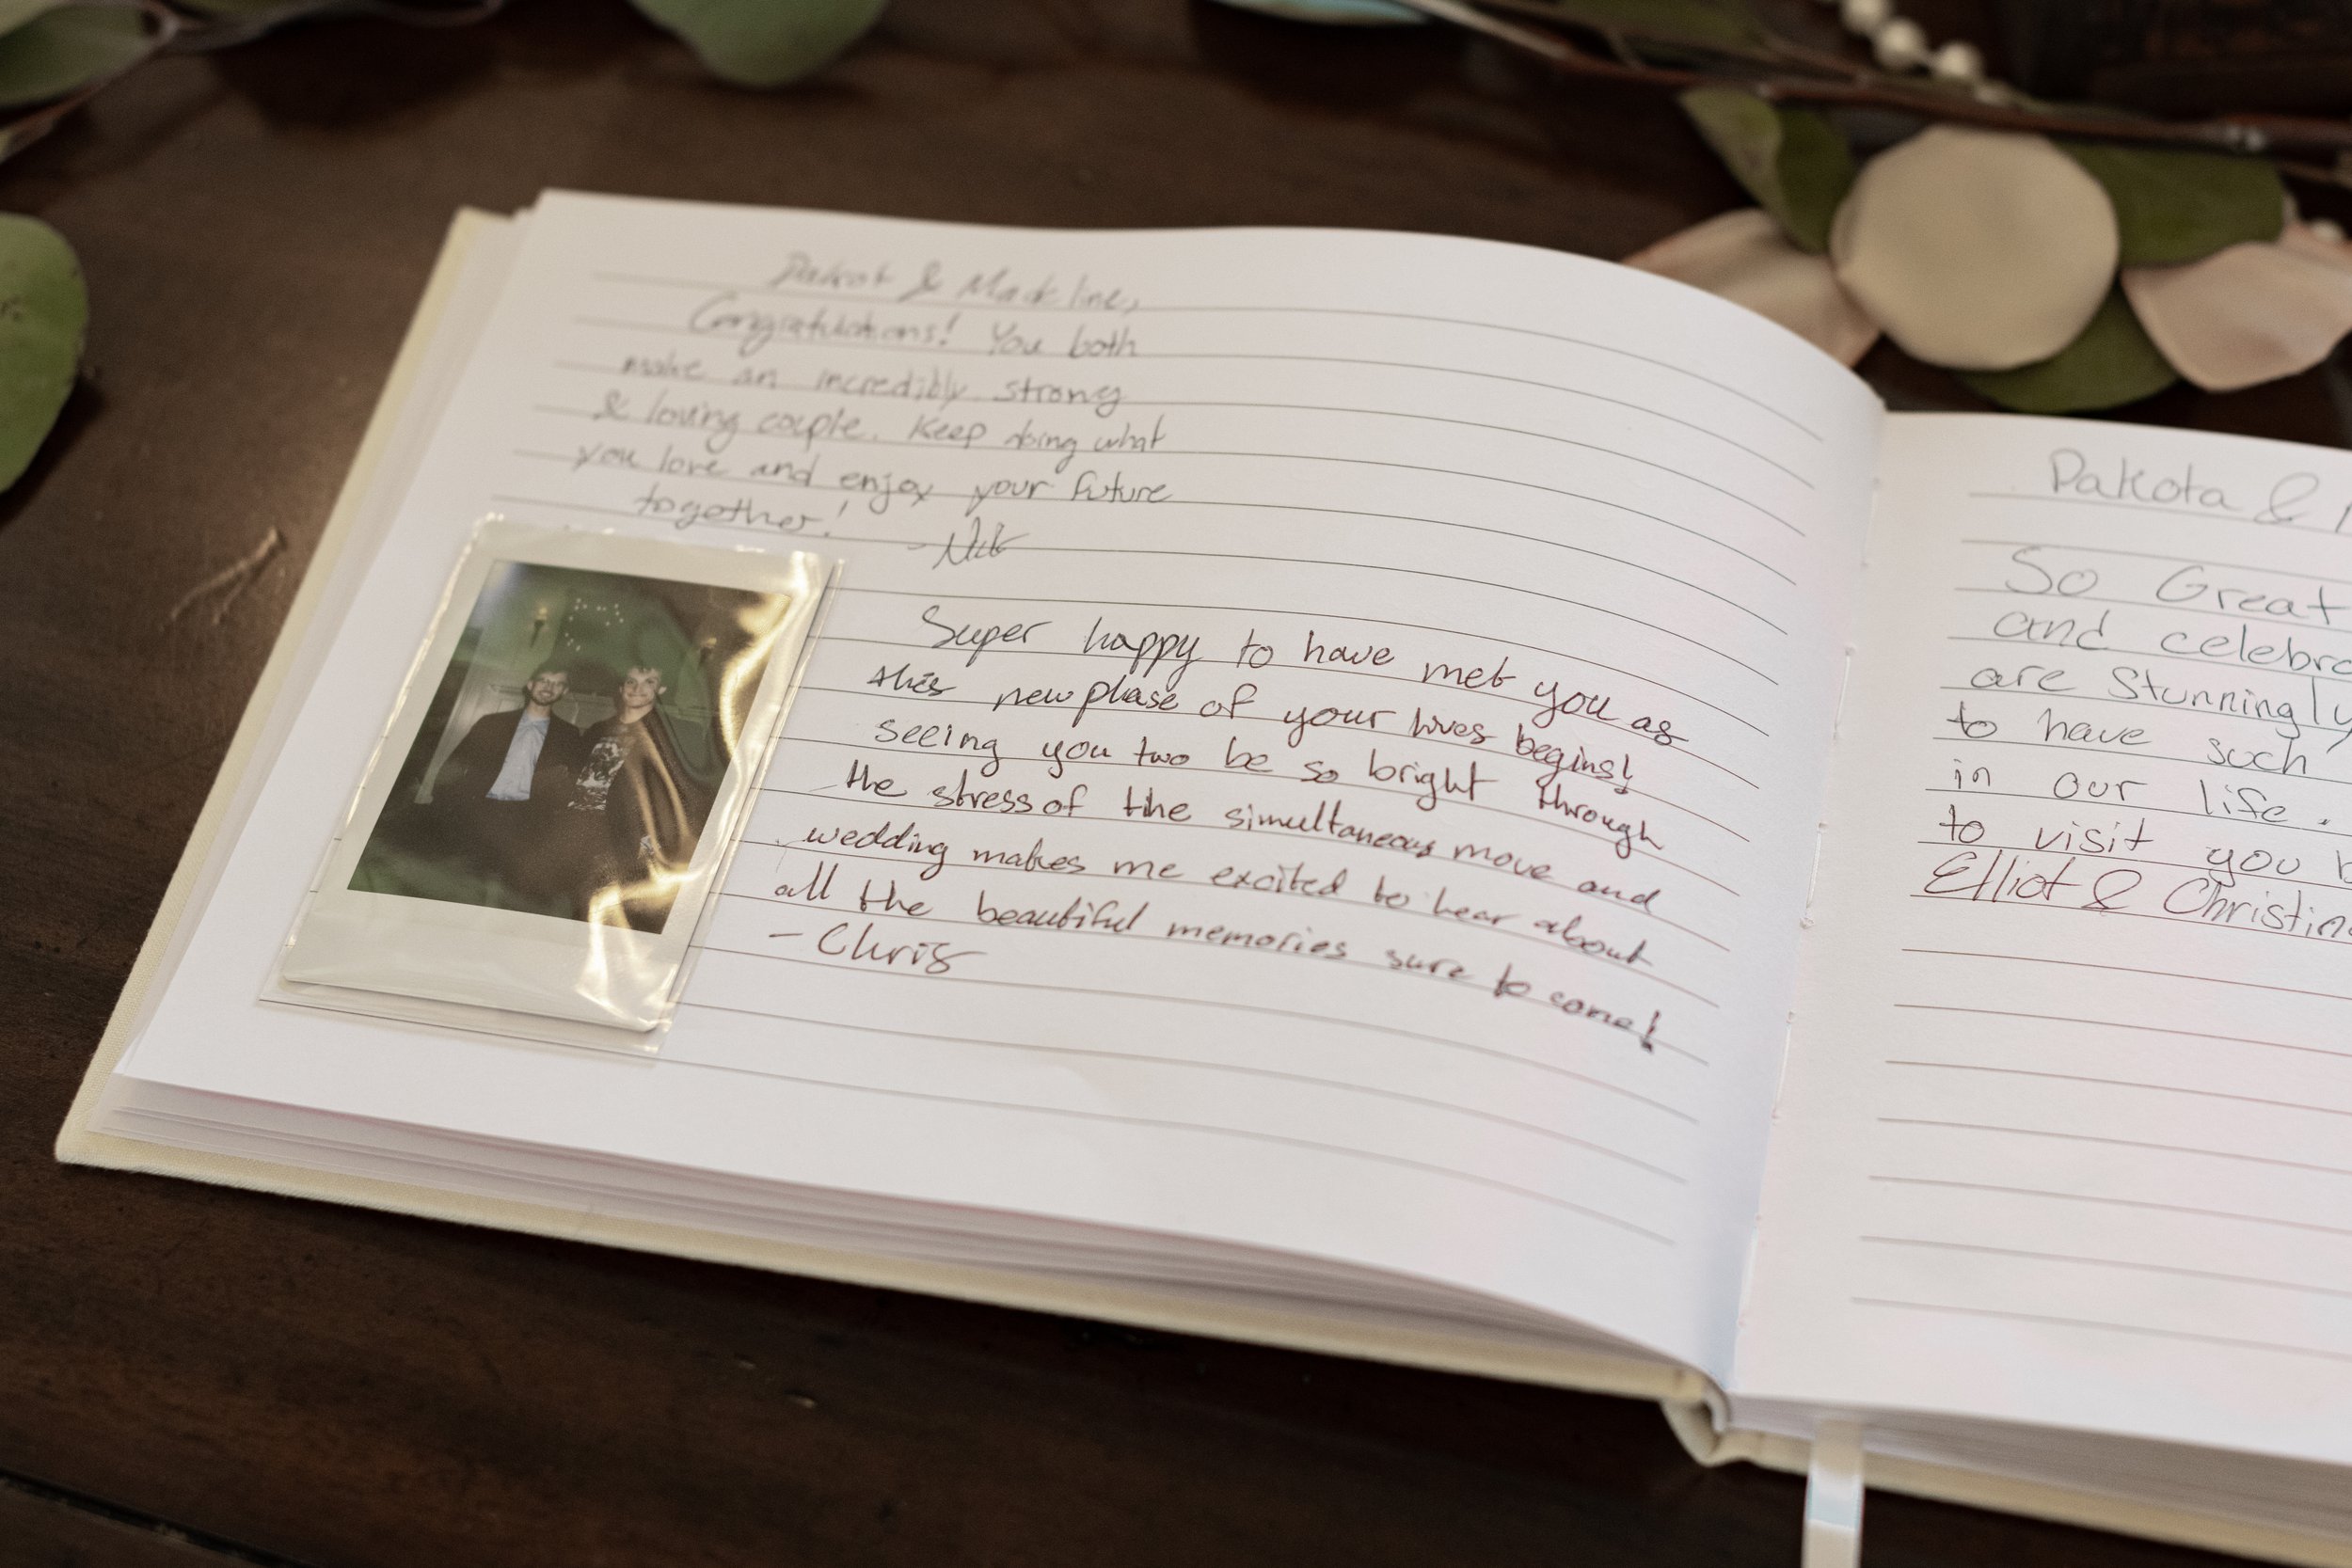 & Madeline,
Congratulations! You both
make an incredibly strong
& loving couple. Keep doing what
you love and enjoy your future
together!
Super happy to have met you as
this new phase of your lives begins!
seeing you two be so bright through
the stress of the simultaneous move and
wedding makes me excited to hear about
all the beautiful memories sure to come!
- Chris
Dakota &
So Great
and celebra
are Stunningly
to have such
in our life.
to visit you b
Elliot & Christin